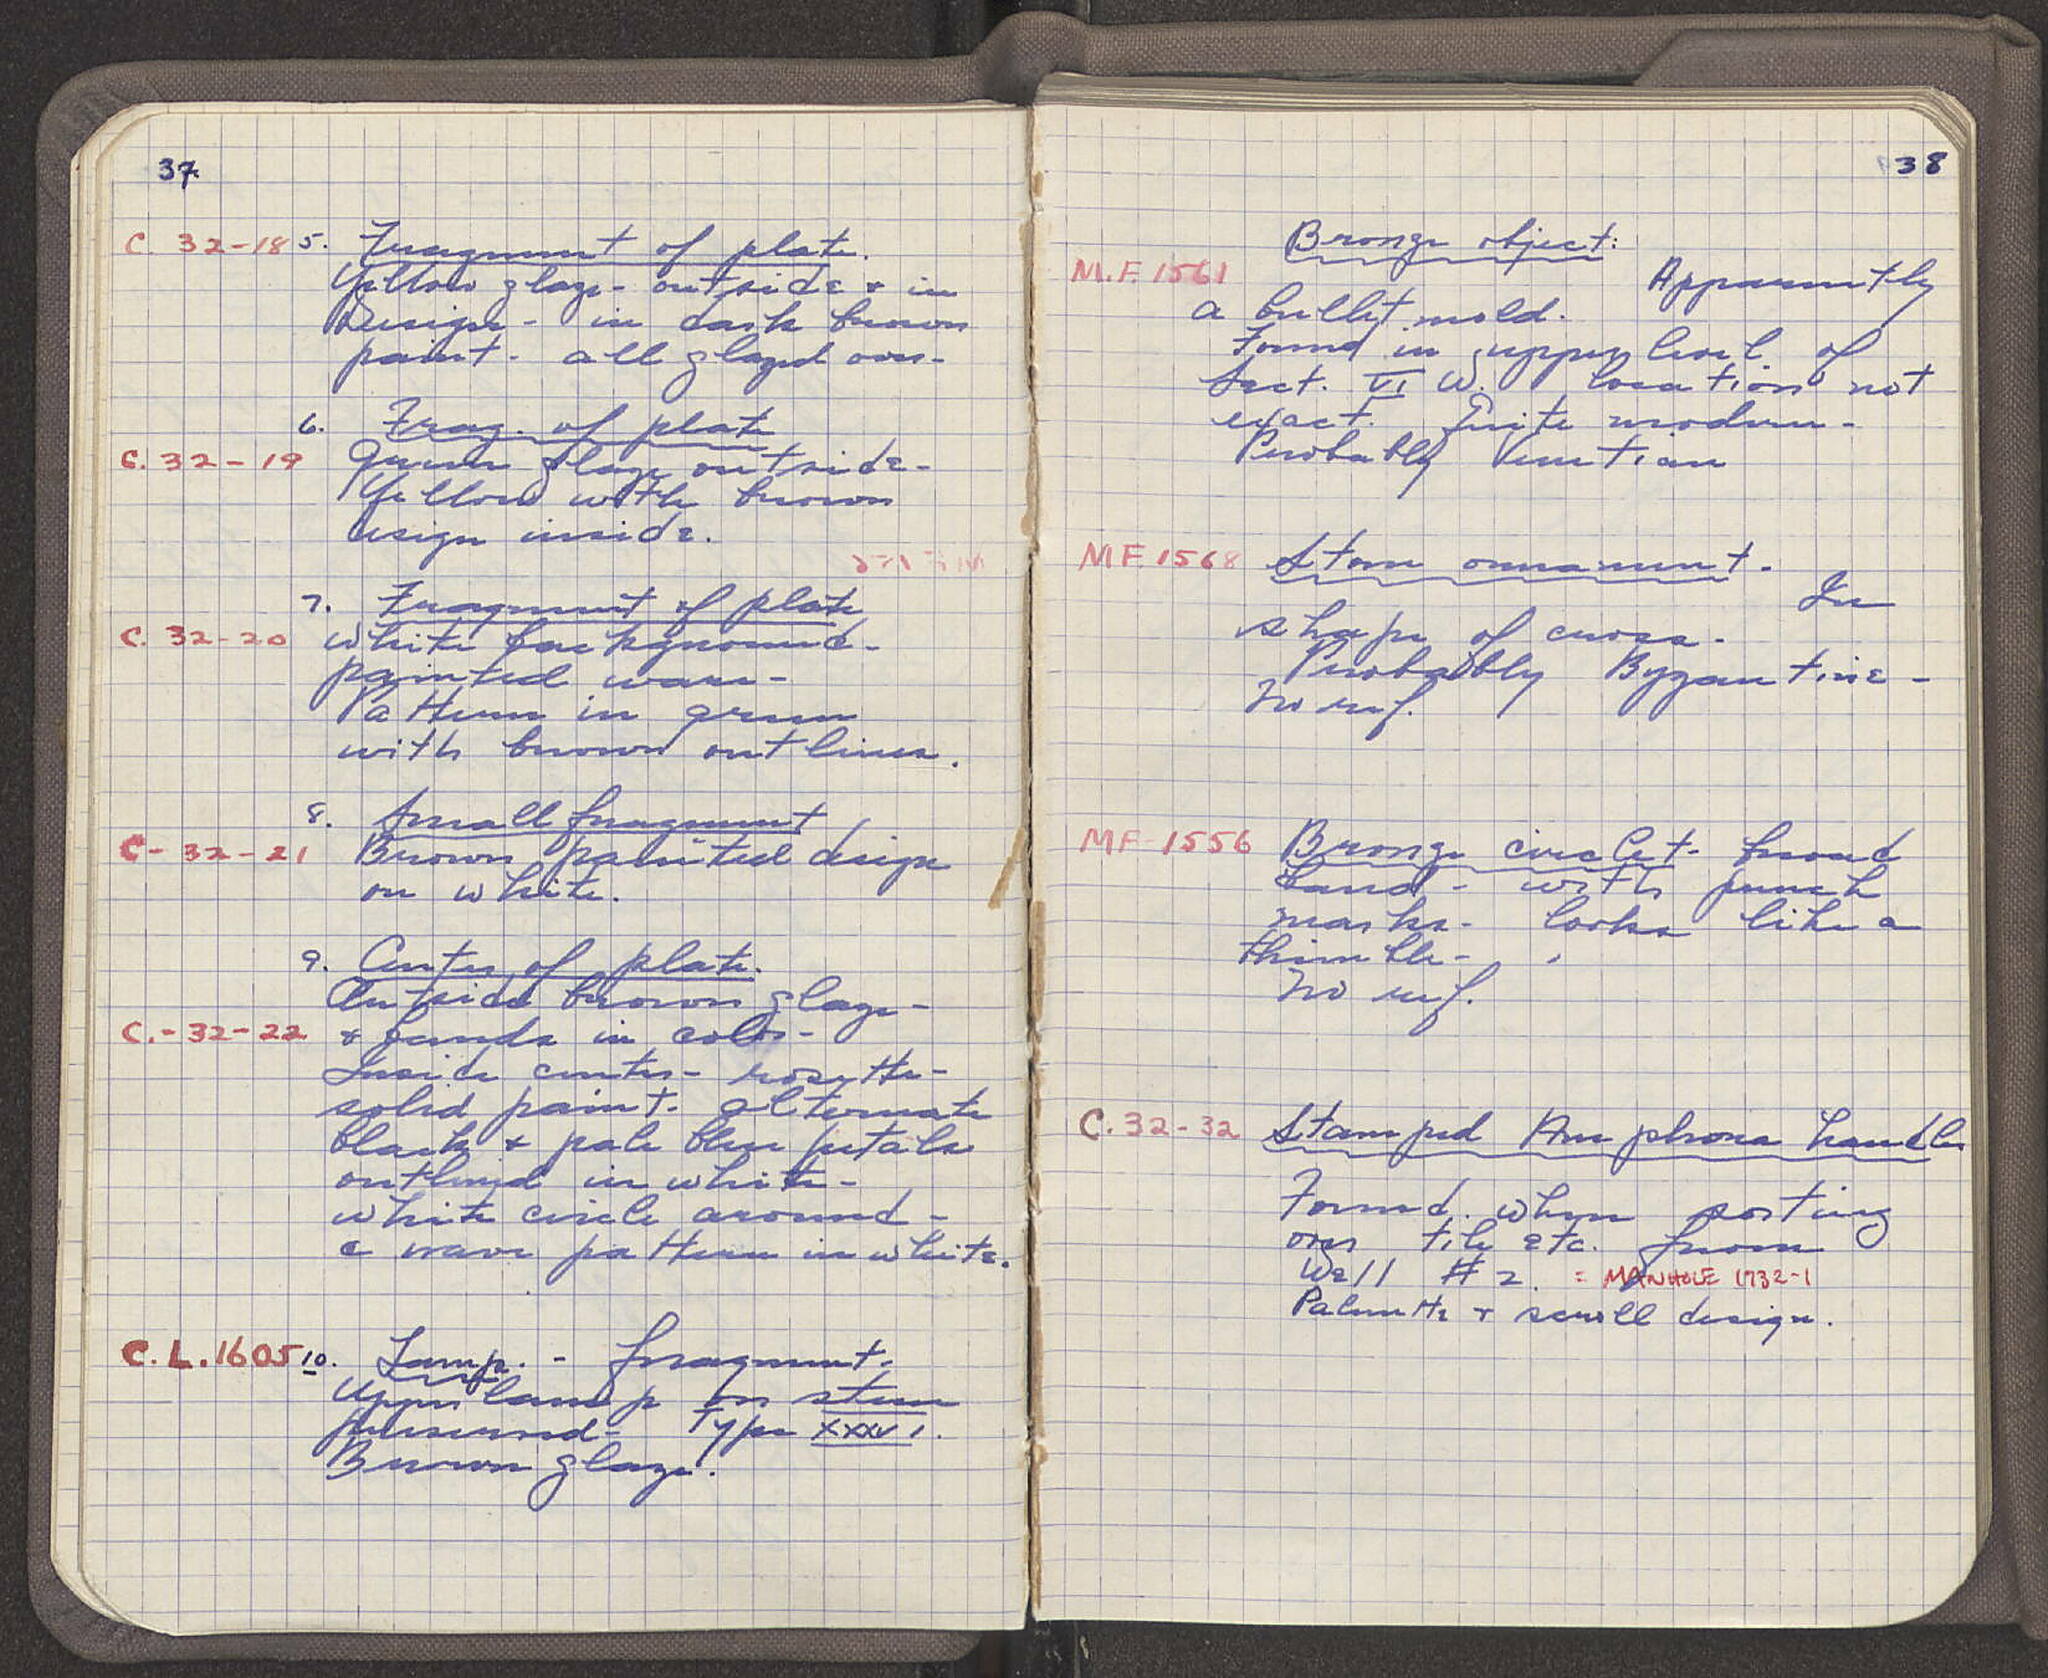 37.
C. 32-18 5. Fragment of plate.
Yellow glaze - outside & in
Design - in dark brown
paint - all glazed over -
6. Frag. of plate
C. 32-19 Green glaze outside -
Yellow with brown
design inside.
7. Fragment of plate
C. 32-20 White background -
painted ware -
Pattern in green
with brown outlines.
8. Small fragment
C-32-21 Brown painted design
on white.
9. Center of plate.
Outside brown glaze -
C.-32-22 & bands in color -
Inside center - rosette -
solid paint - alternate
black & pale blue petals
outlined in white -
white circle around -
c wave pattern in white.
C.L.1605 10. Lamp. - fragment.
Upper lamp on stem
preserved - Type XXXVI.
Brown glaze.
38
Bronze object:
M.F. 1561 Apparently
a bullet mold.
Found in upper level of
Sect. VI W. location not
exact. Quite modern -
Probably Venetian
MF 1568 Stone ornament.
In
shape of cross -
Probably Byzantine -
No ref.
MF-1556 Bronze circlet - broad
band - with punch
marks - looks like a
thimble -
No ref.
C.32-32 Stamped Amphora handle
Found when sorting
over tile etc. from
Well #2. = MANHOLE 1932-1
Palmette & scroll design.